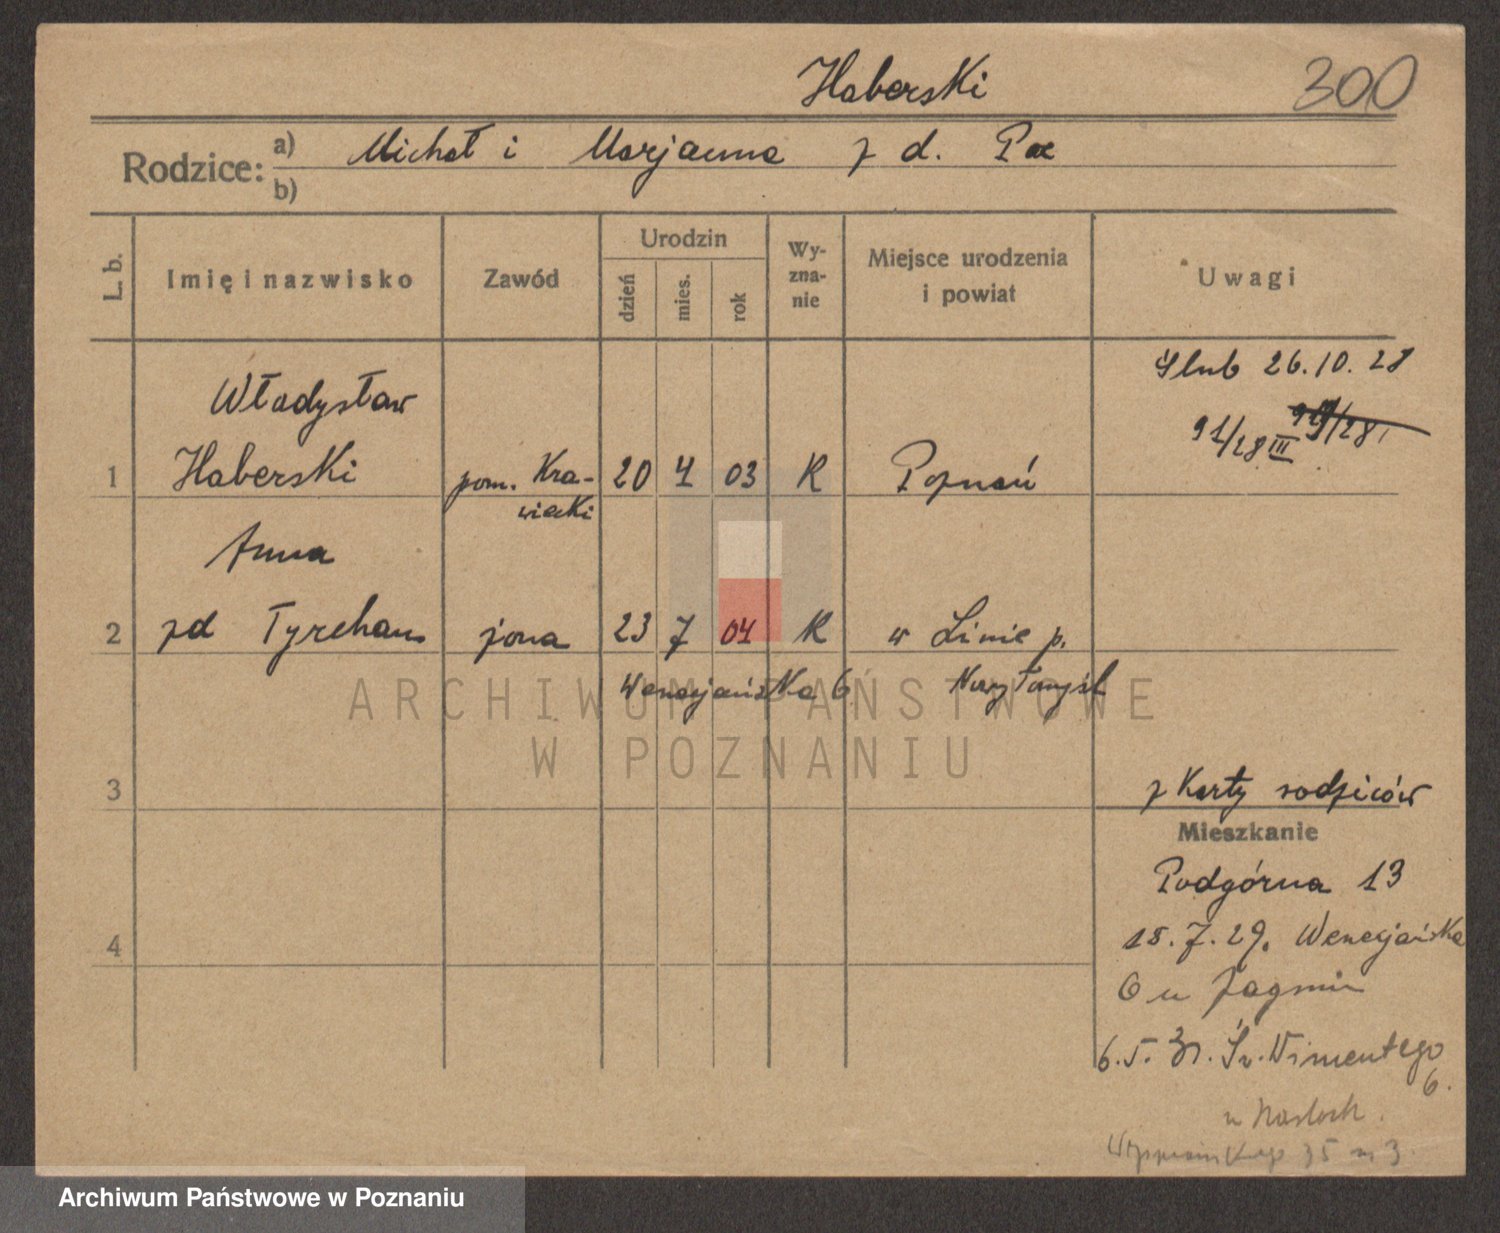 Haberski 300
Rodzice: a) Michał i Marjanna z d. Pac
b)
L. b. Imię i nazwisko Zawód Urodzin dzień mies. rok Wy-zna-nie Miejsce urodzenia i powiat Uwagi
Ślub 26.10.28
91/28 III
Władysław
1 Haberski pom. Kra- 20 4 03 K Poznań
wiecki
Anna
2 zd Tyrchan żona 23 7 04 K w Linie p.
Wenecjańska 6 Nowy Tomyśl
ARCHIWUM PAŃSTWOWE
W POZNANIU
3 z Karty rodziców
Mieszkanie
Podgórna 13
4 15.7.29. Wenecjańska
6 u Jagmin
6.5.31. Św. Wincentego
6.
35 m 3
Archiwum Państwowe w Poznaniu